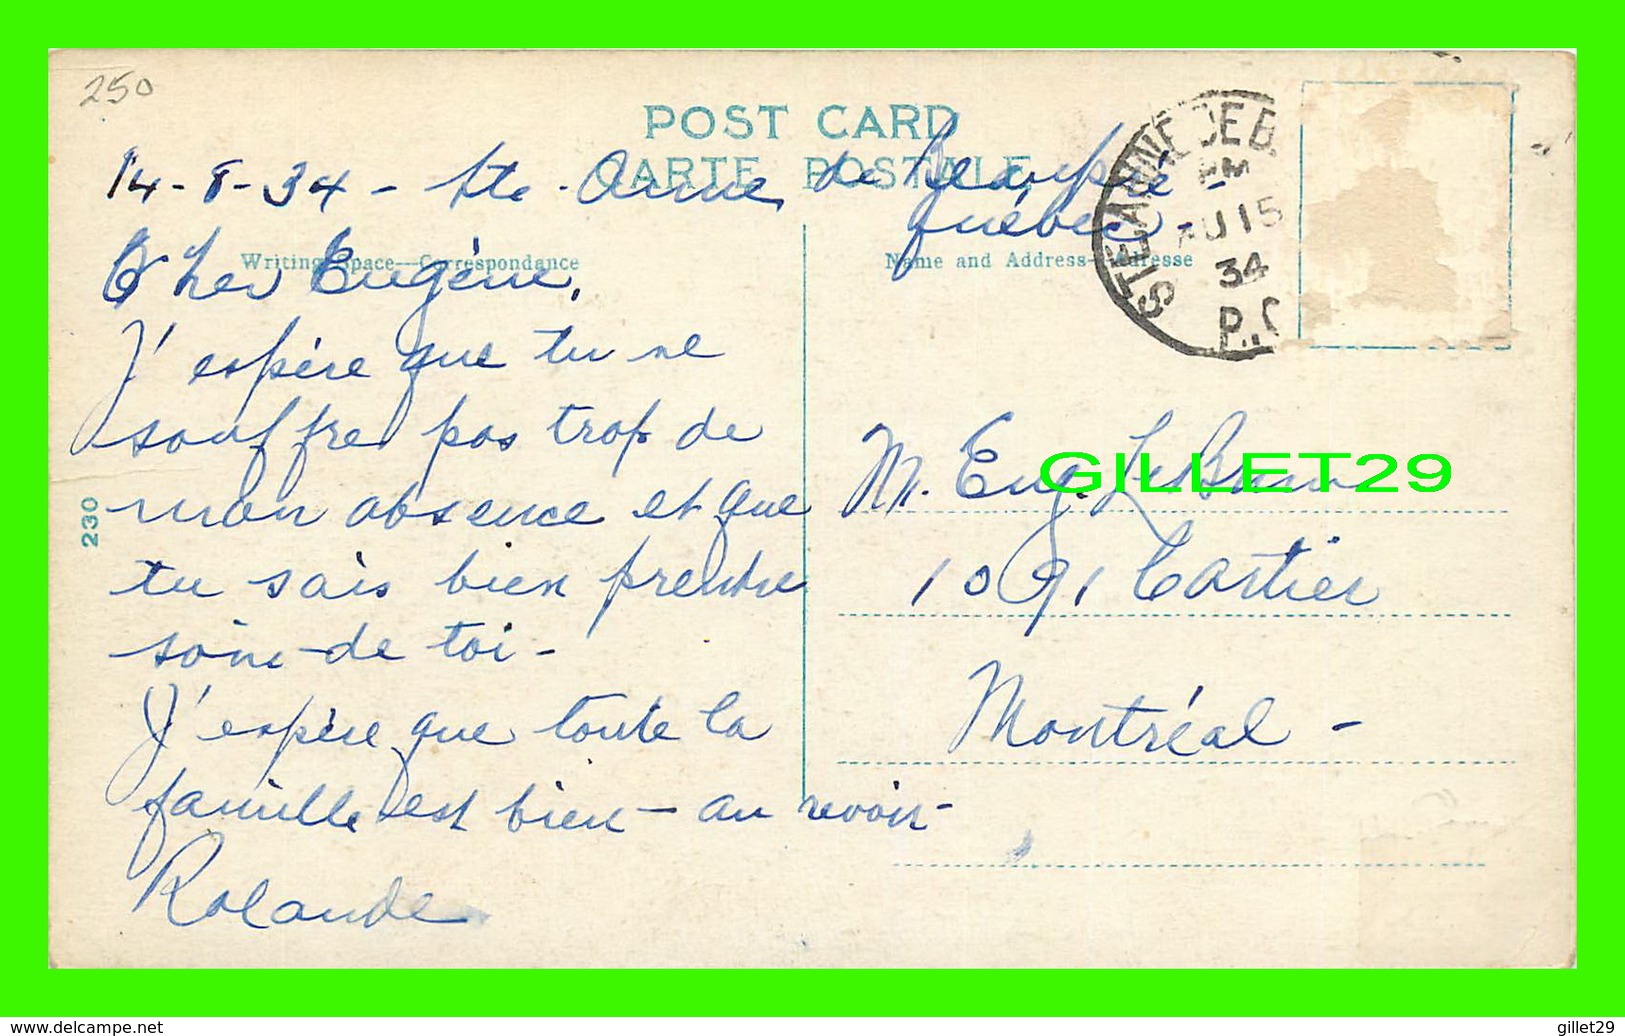 250
POST CARD
CARTE POSTALE
14-8-34 - Ste. Anne de Beaupré -
Québec
Writing Space—Correspondance
Name and Address—Adresse
Cher Eugène,
J'espère que tu ne
souffre pas trop de
mon absence et que
tu sais bien prendre
soin de toi -
J'espère que toute la
famille est bien - au revoir -
Rolande
230
STE ANNE DE B.
PM
AU 15
34
P.Q
M. Eug. LeBrun
1091 Cartier
Montréal -
GILLET29
https://www.delcampe.net
gillet29